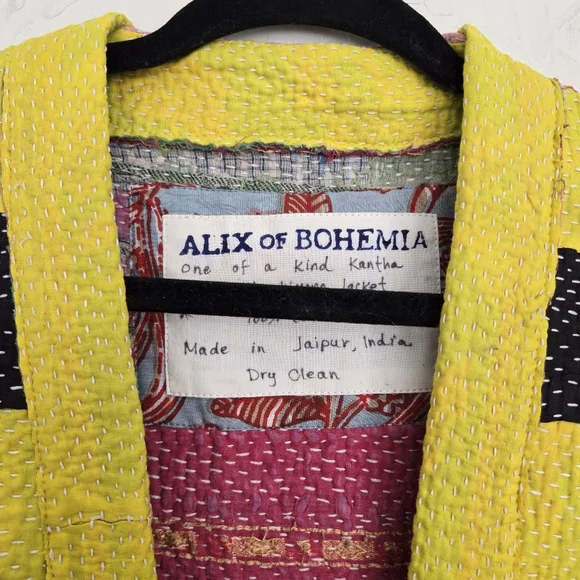 ALIX OF BOHEMIA
one of a kind Kantha
Jacket
100%
Made in Jaipur, India
Dry Clean